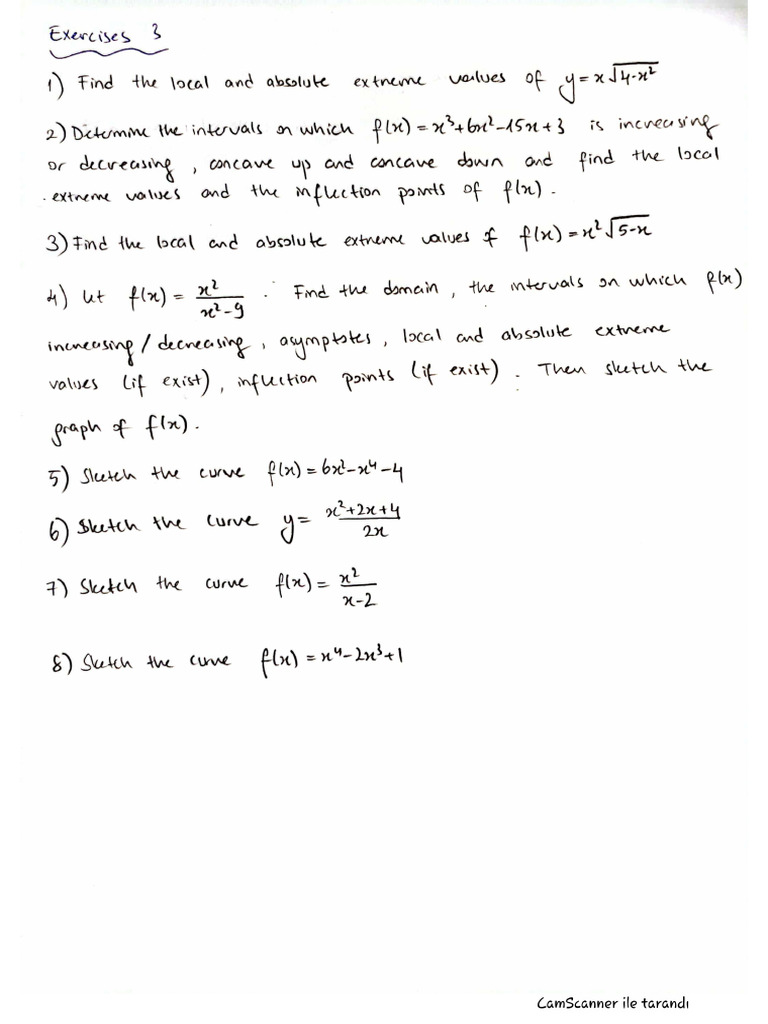 Exercises 3
1) Find the local and absolute extreme values of y = x√(4-x²)
2) Determine the intervals on which f(x) = x³+6x²-15x+3 is increasing
or decreasing, concave up and concave down and find the local
extreme values and the inflection points of f(x).
3) Find the local and absolute extreme values of f(x) = x²√(5-x)
4) Let f(x) = x²/(x²-9). Find the domain, the intervals on which f(x)
increasing / decreasing, asymptotes, local and absolute extreme
values (if exist), inflection points (if exist). Then sketch the
graph of f(x).
5) Sketch the curve f(x) = 6x²-x⁴-4
6) Sketch the curve y = (x²+2x+4)/(2x)
7) Sketch the curve f(x) = x²/(x-2)
8) Sketch the curve f(x) = x⁴-2x³+1
CamScanner ile tarandı